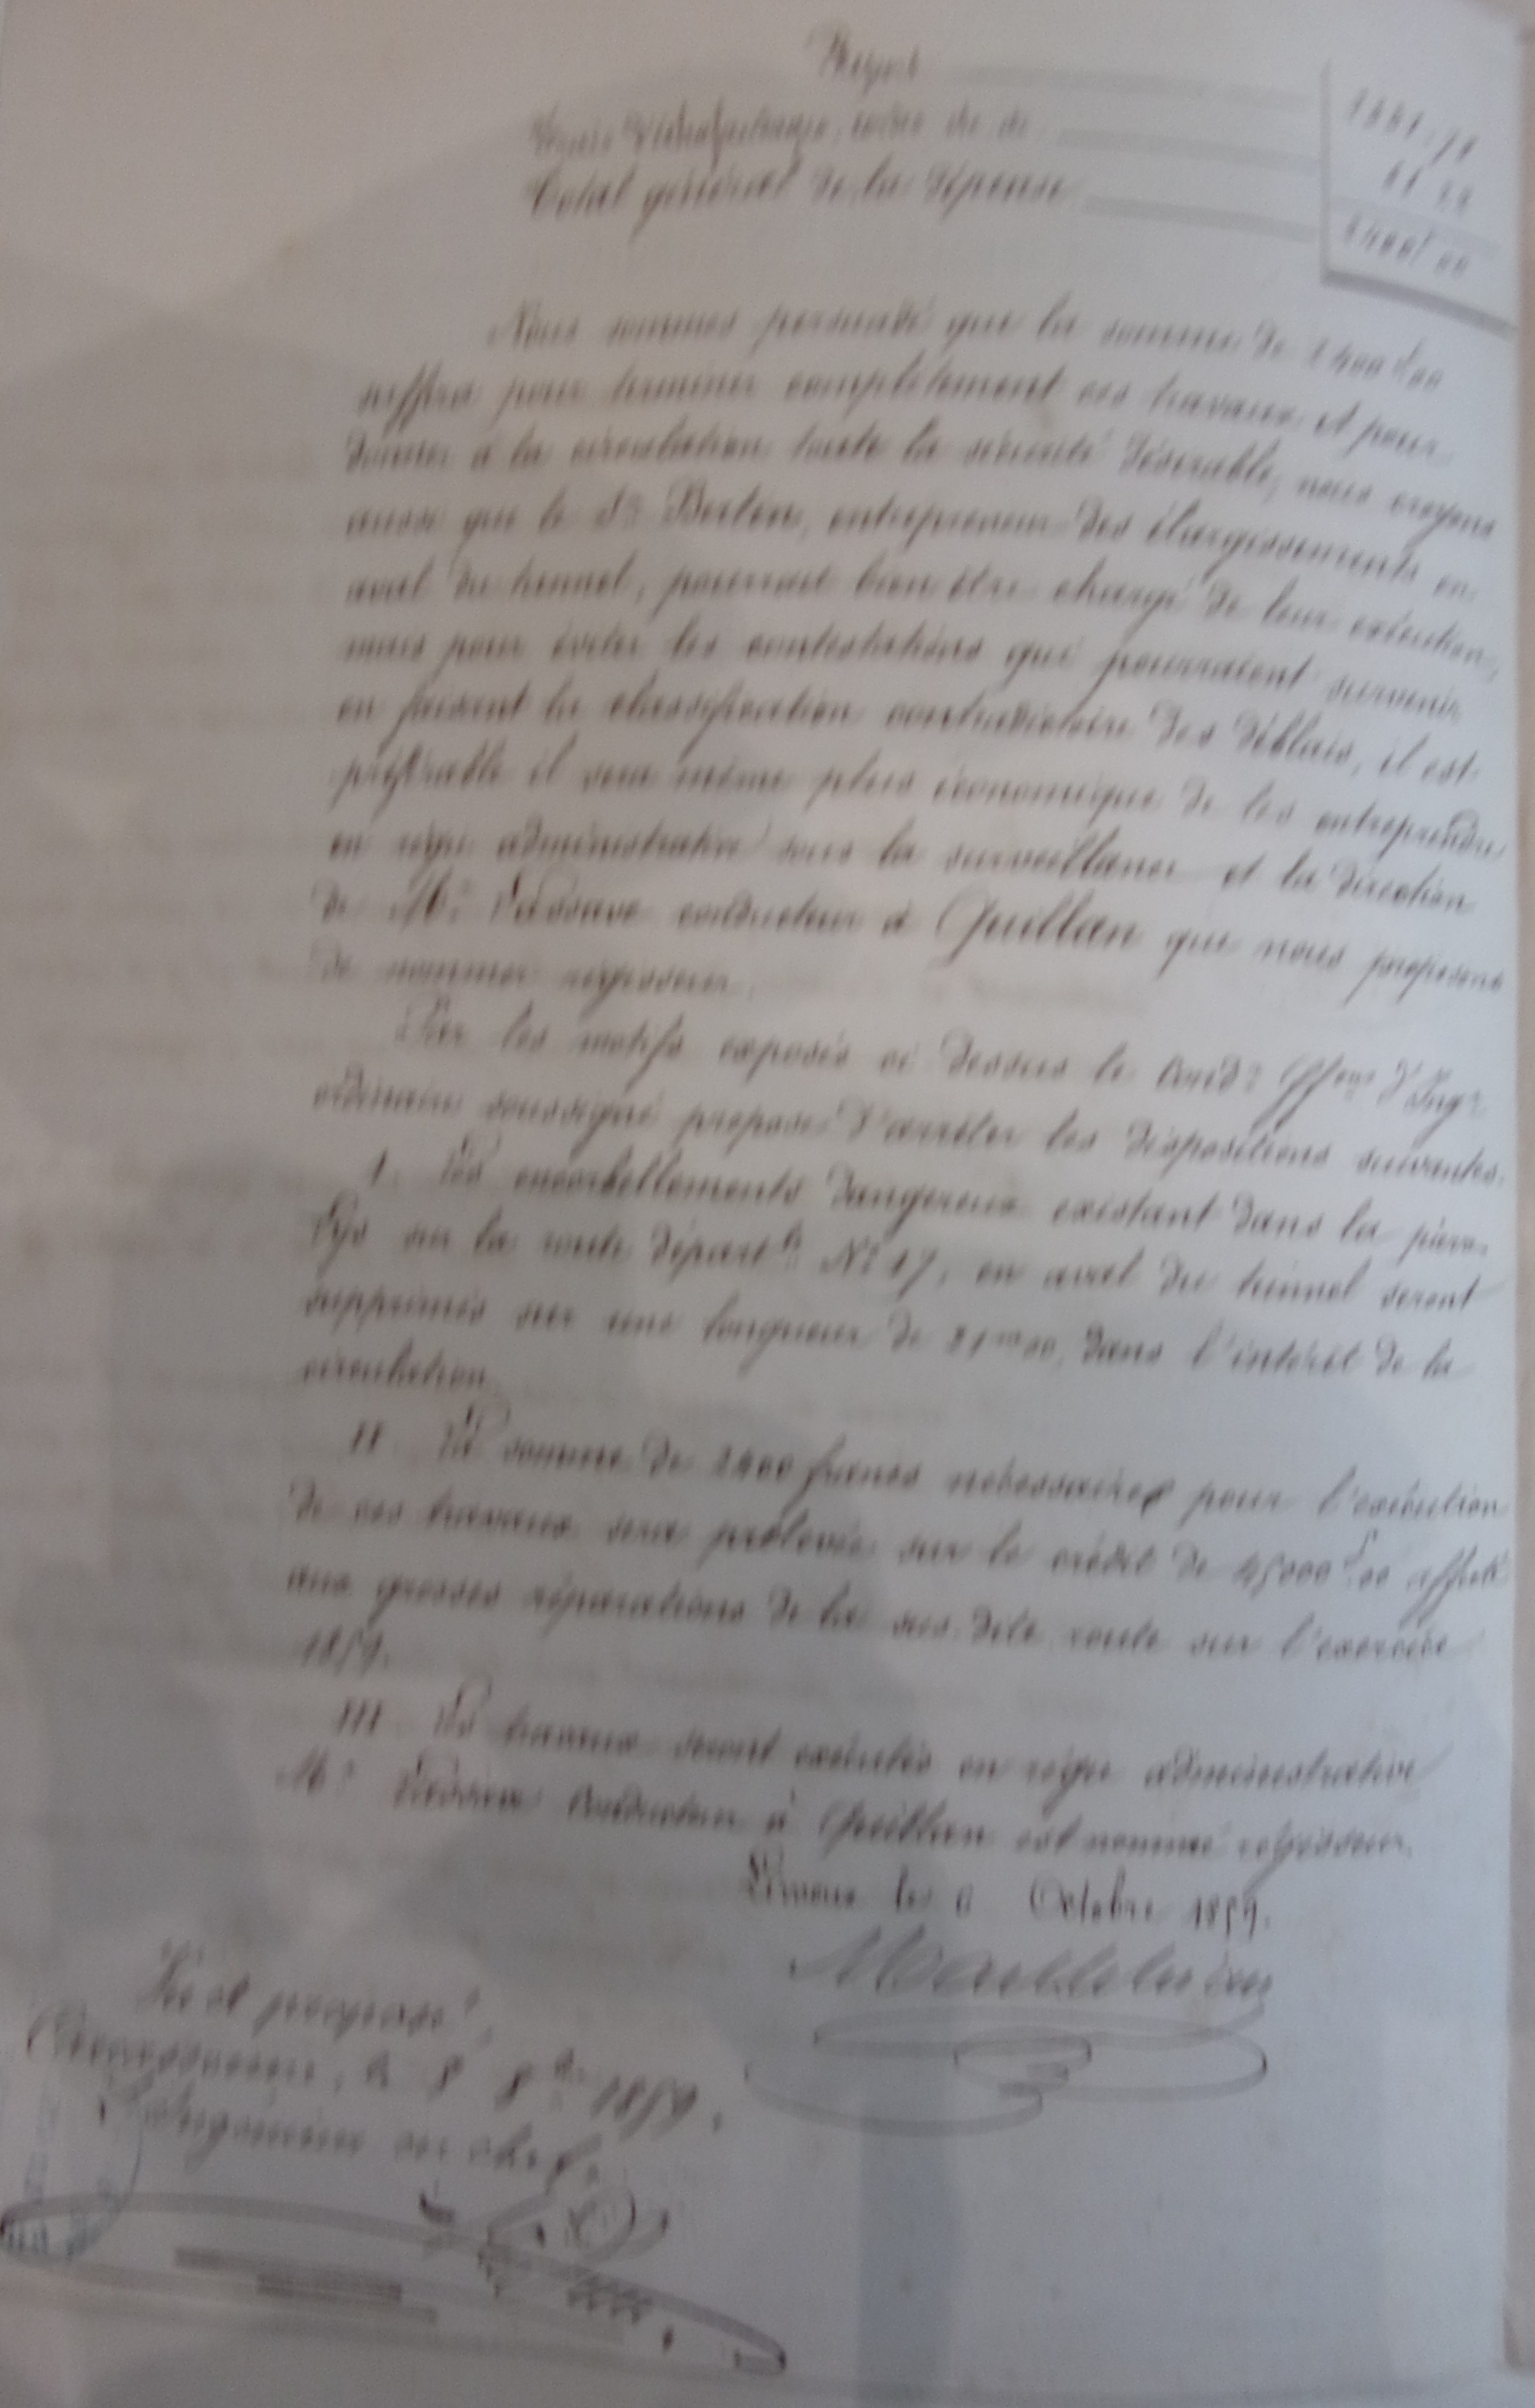 Report
Total général de la dépense 2400f 00
Nous sommes persuadé que la somme de 2400f.00
suffira pour terminer complètement ces travaux et pour
donner à la circulation toute la sécurité désirable, nous croyons
aussi que le Sr Berton, entrepreneur des élargissements en
aval du tunnel, pourrait bien être chargé de leur exécution,
mais pour éviter les contestations qui pourraient survenir
en faisant la classification contradictoire des déblais, il est
préférable il sera même plus économique de les entreprendre
en régie administrative sous la surveillance et la direction
de Mr conducteur à Quillan que nous proposons
de nommer régisseur.
Par les motifs exposés ci dessus le Condr ffons d'Ingr
ordinaire soussigné propose d'arrêter les dispositions suivantes.
I. Les encorbellements dangereux existant dans la pierre
Lys sur la route départle No 17, en aval du tunnel seront
supprimés sur une longueur de 21m00, dans l'intérêt de la
circulation.
II. La somme de 2400 francs nécessaires pour l'exécution
de ces travaux sera prélevée sur le crédit de 45000f.00 affecté
aux grosses réparations de la sus-dite route sur l'exercice
1859.
III. Les travaux seront exécutés en régie administrative
Mr Conducteur à Quillan est nommé régisseur.
Limoux le 6 Octobre 1859.
Vu et proposé,
Carcassonne, le 8 8bre 1859.
L'Ingénieur en chef,